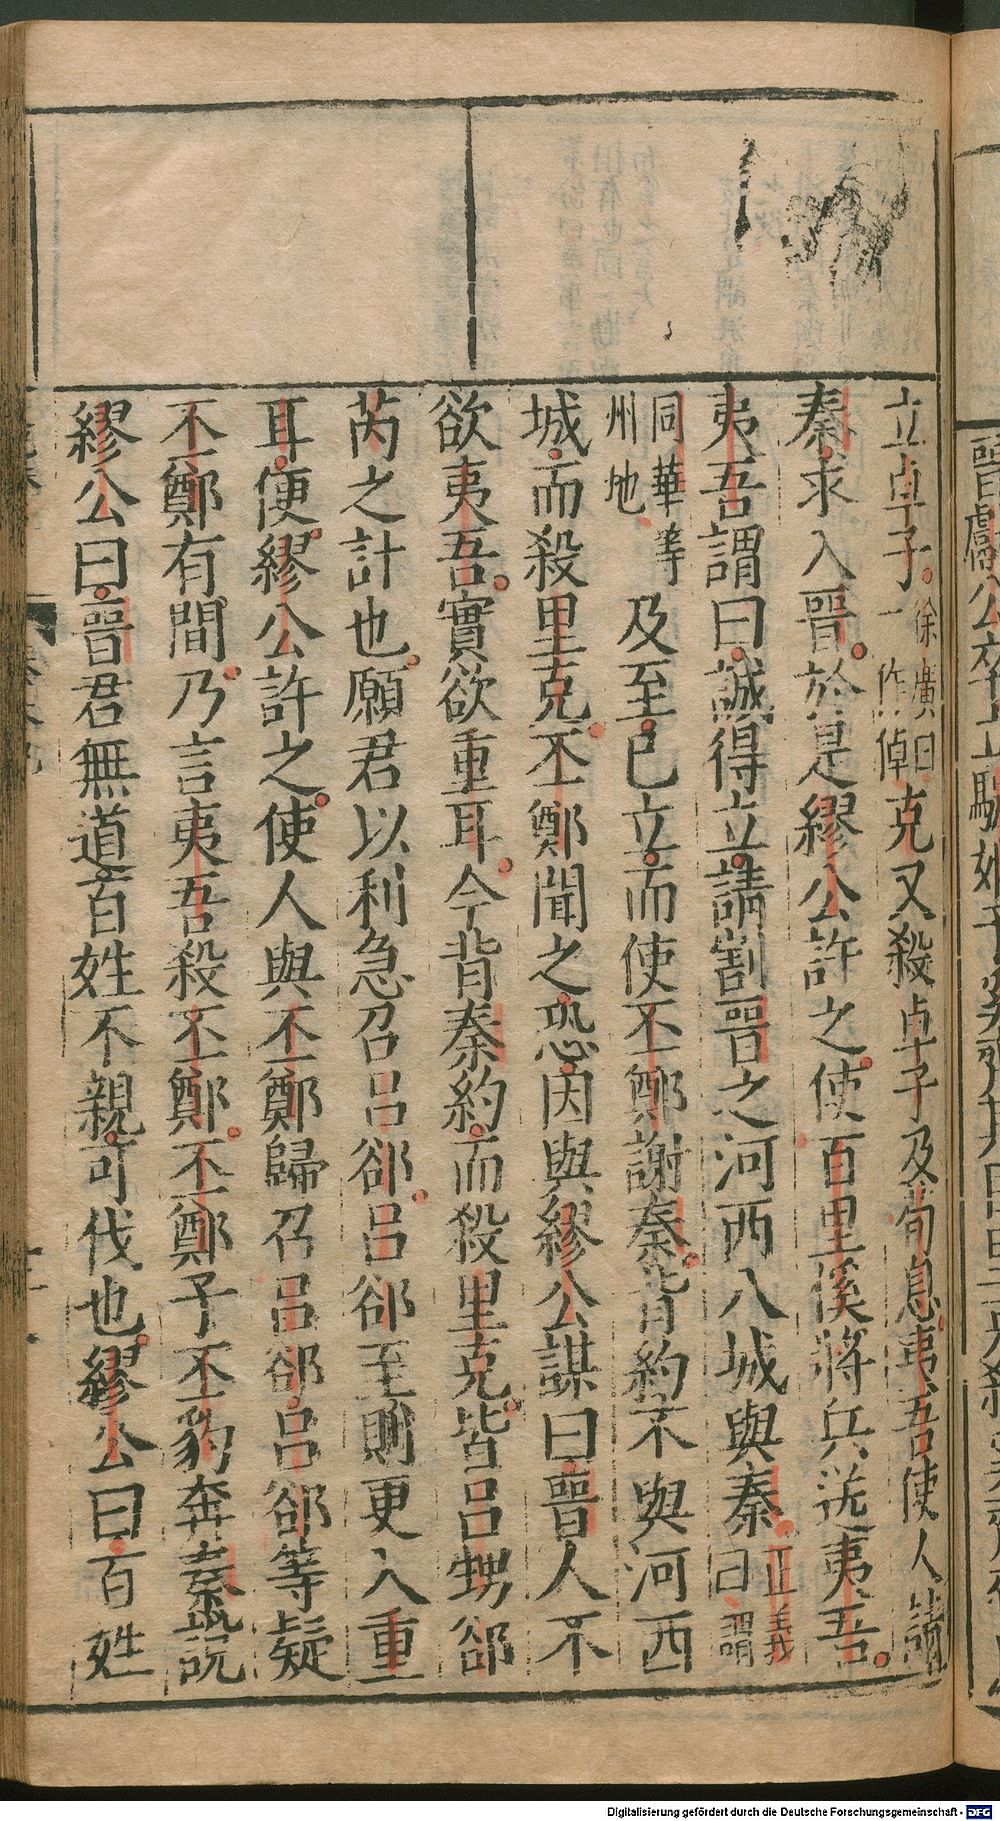 立卓子徐廣曰一作倬克又殺卓子及荀息夷吾使人請
秦求入晉於是繆公許之使百里傒將兵送夷吾
夷吾謂曰誠得立請割晉之河西八城與秦正義曰謂
同華等州地及至已立而使丕鄭謝秦背約不與河西
城而殺里克丕鄭聞之恐因與繆公謀曰晉人不
欲夷吾實欲重耳今背秦約而殺里克皆呂甥郤
芮之計也願君以利急召呂郤呂郤至則更入重
耳便繆公許之使人與丕鄭歸召呂郤呂郤等疑
丕鄭有間乃言夷吾殺丕鄭丕鄭子丕豹奔秦說
繆公曰晉君無道百姓不親可伐也繆公曰百姓
Digitalisierung gefördert durch die Deutsche Forschungsgemeinschaft - DFG